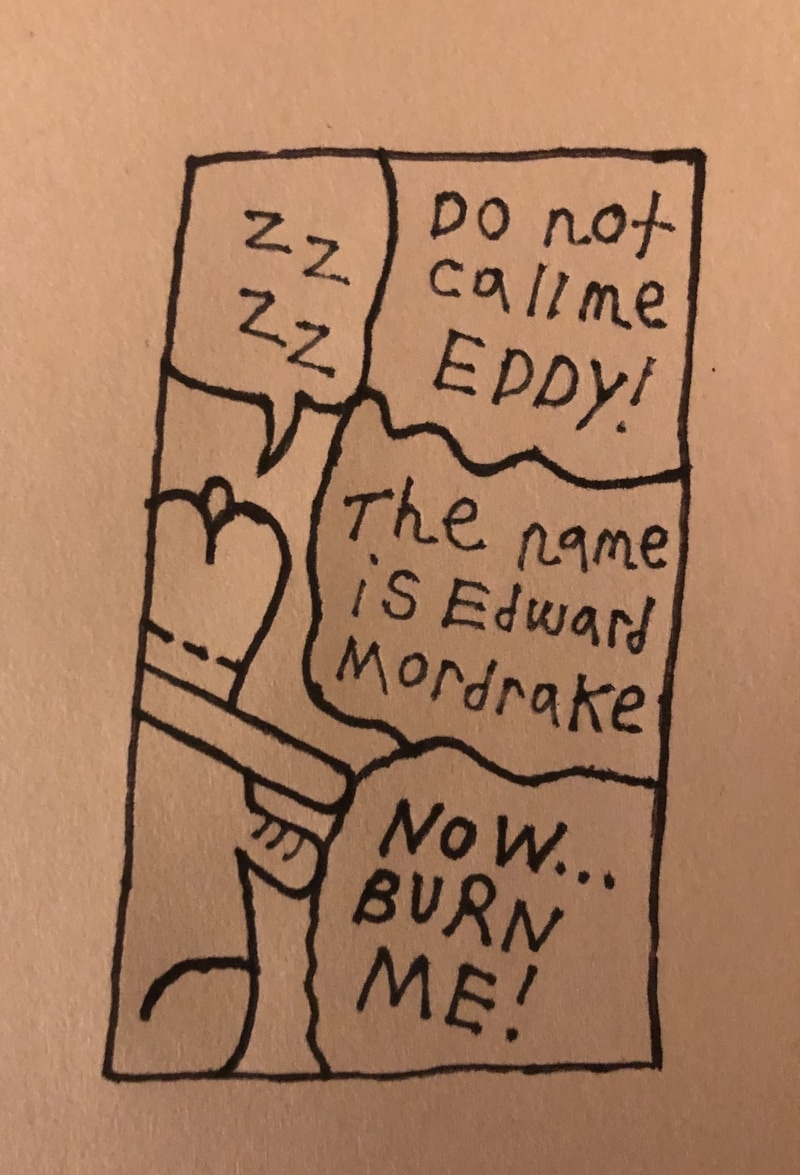 z z
z z
DO not
call me
EDDY!
The name
is Edward
Mordrake
NOW...
BURN
ME!